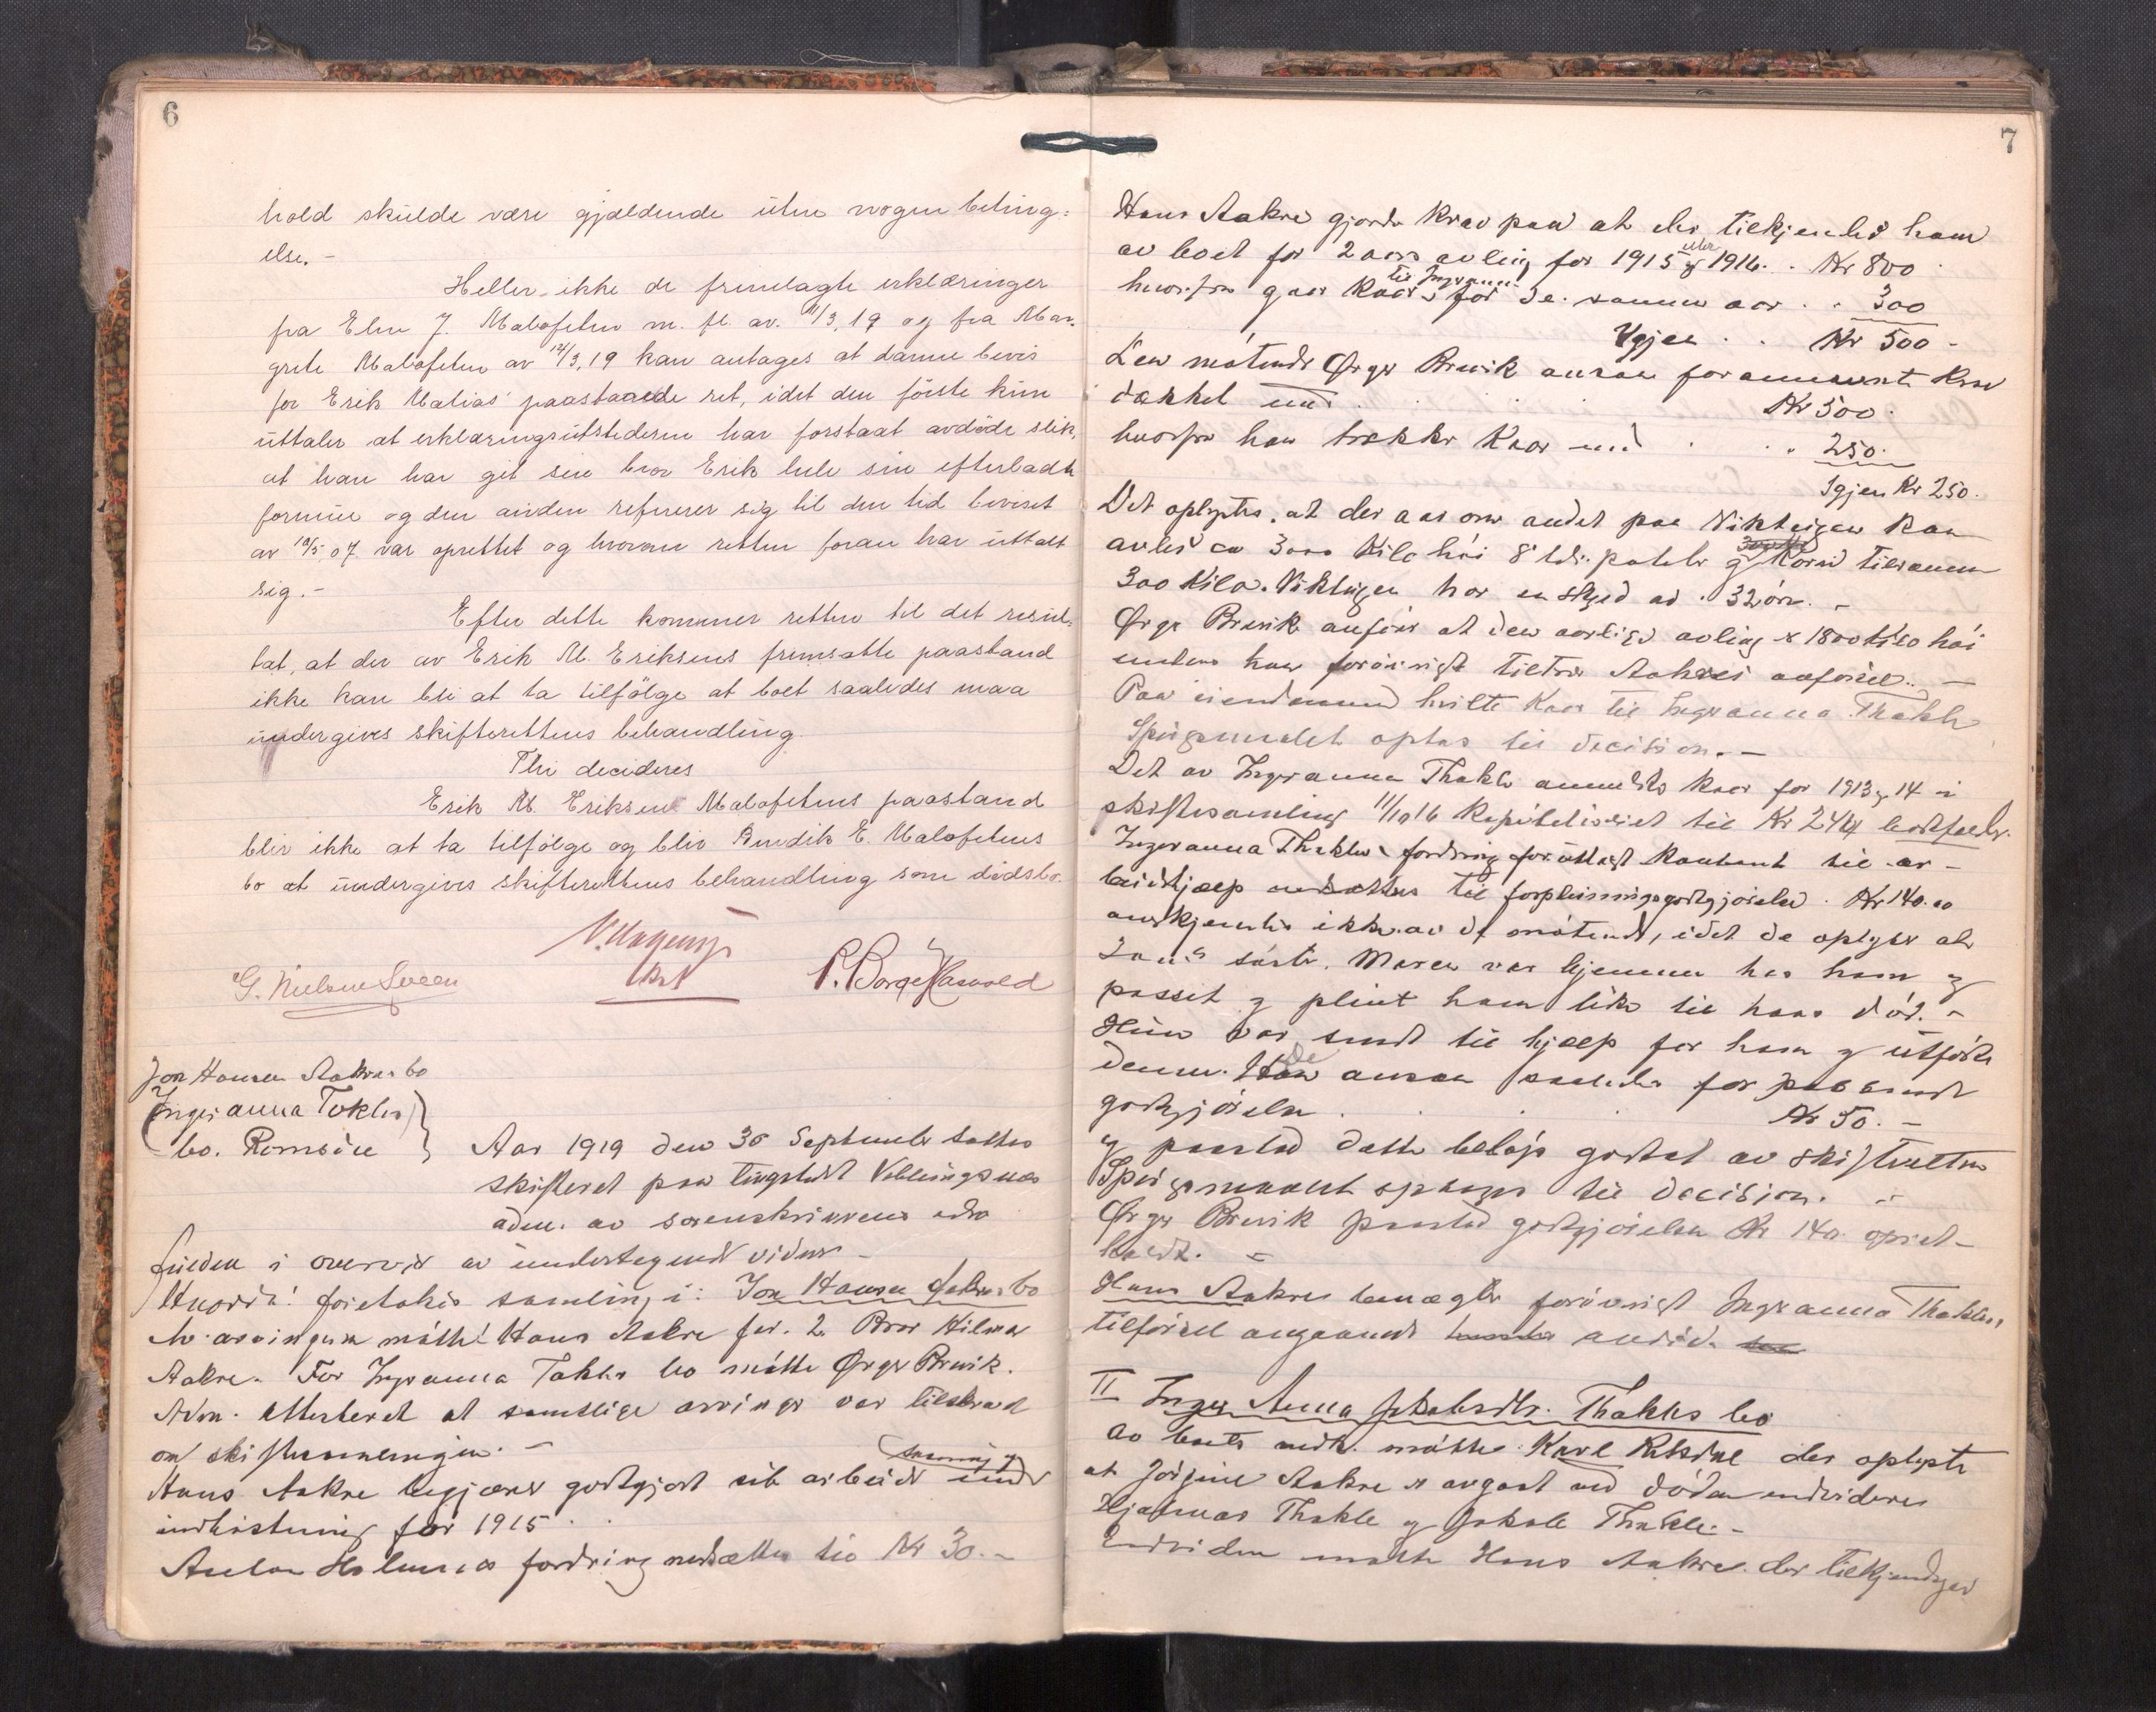 6
hold skulde være gjældende uten nogen beting=
else. -
Heller ikke de fremlagte erklæringer
fra Elen J. Malofeten m. fl. av 11/3, 19 og fra Mar-
grete Malofeten av 12/3, 19 kan antages at danne bevis
for Erik Malias' paastaaede ret, idet den første kun
uttaler at erklæringsutstederne har forstaat avdøde slik,
at han har git sin bror Erik hele sin efterladte
formue og den anden refererer sig til den tid beviset
av 10/5, 07 var oprettet og hvorom retten foran har uttalt
sig. -
Efter dette kommer retten til det resul-
tat, at der av Erik M. Eriksens fremsatte paastand
ikke kan bli at ta tilfølge at boet saaledes maa
undergives skifterettens behandling.
Thi decideres
Erik M. Eriksen Malofetens paastand
blir ikke at ta tilfølge og blir Bendik E. Malofetens
bo at undergives skifterettens behandling som dødsbo.
G. Nielsen Sveen P. Borge Hasvold
Jon Hansen Aakres bo
Inger anna Tokles
bo. Romsøen } Aar 1919 den 30 September sattes
skifteret paa tingstedet
adm. av sorenskriverens edsv
fuldm i overvær av undertegnede vidner -
Hvorda! foretokes samling i: Jon Hansen Aakres bo
Av arvingerne møtte! Hans Aakre for. 2 Bror Hilmar
Aakre. For Inger anna Takles bo møtte Ørger Brevik.
Adm. Attesteret at samtlige arvinger var tilstevnet
om skiftesamlingen. -
Hans Aakre begjærer godtgjort sit arbeide under
indhøstning for 1915 .
Anton fordring nedsættes til Kr 30. -
7
Hans Aakre gjorde krav paa at der tilkjendes ham
av boet for 2 aars avling for 1915 og 1916. . Kr 800
hvorfra gaar Kaar til Ingeranna for de samme aar . . 300
Igjen . . Kr 500 -
Den møtende Ørger Brevik ansaa forannævnte krav
dækket med . . . Kr 500 .
hvorfra han trækker Kaar med . . . 250.
Igjen Kr 250.
Det oplystes, at der aar om andet paa kan
avles ca 3000 Kilo høi 8 tdr. poteter og Korn tilsammen
300 Kilo. har en skyld av . 32 øre. -
Ørger Brevik anfører at den aarlige avling er 1800 Kilo høi
mens han forøvrigt tiltrær Aakres anførsel. -
Paa eiendommen hvilte Kaar til Ingeranna Thakle
Spørgsmalet optas til decision. -
Det av Ingeranna Thakle anmeldte kaar for 1913 og 14 i
skiftesamling 11/10 16 Kapitaliseret til Kr 244 bortfalder.
Ingeranna Thakles fordring for utlagt kontant til ar-
beidshjælp til forpleiningsgodtgjørelse . Kr 140.00
anerkjendes ikke av de møtende, idet de oplyser at
Jon's søster. Maren var hjemme hos ham og
passet og pleiet ham like til hans død. -
Hun var sendt til hjælp for ham og utførte
denne. De ansaa saaledes for passende
godtgjørelse . . . Kr 50. -
og paastod dette beløp godtat av skifteretten
Spørgsmaalet optages til decision. -
Ørger Brevik paastod godtgjørelsen Kr 140. opret-
holdt. -
Hans Aakre benægter forøvrigt Ingeranna Thakles
tilførsel angaaende
II Inger Anna Jakobsdtr. Thakles bo
Av boets vedk. møtte Karl der oplyste
at Jørgine Aakre er avgaat ved døden endvidere
Hjalmar Thakle og Jakob Thakle. -
Endvidere møtte Hans Aakre. der tilkjendegav